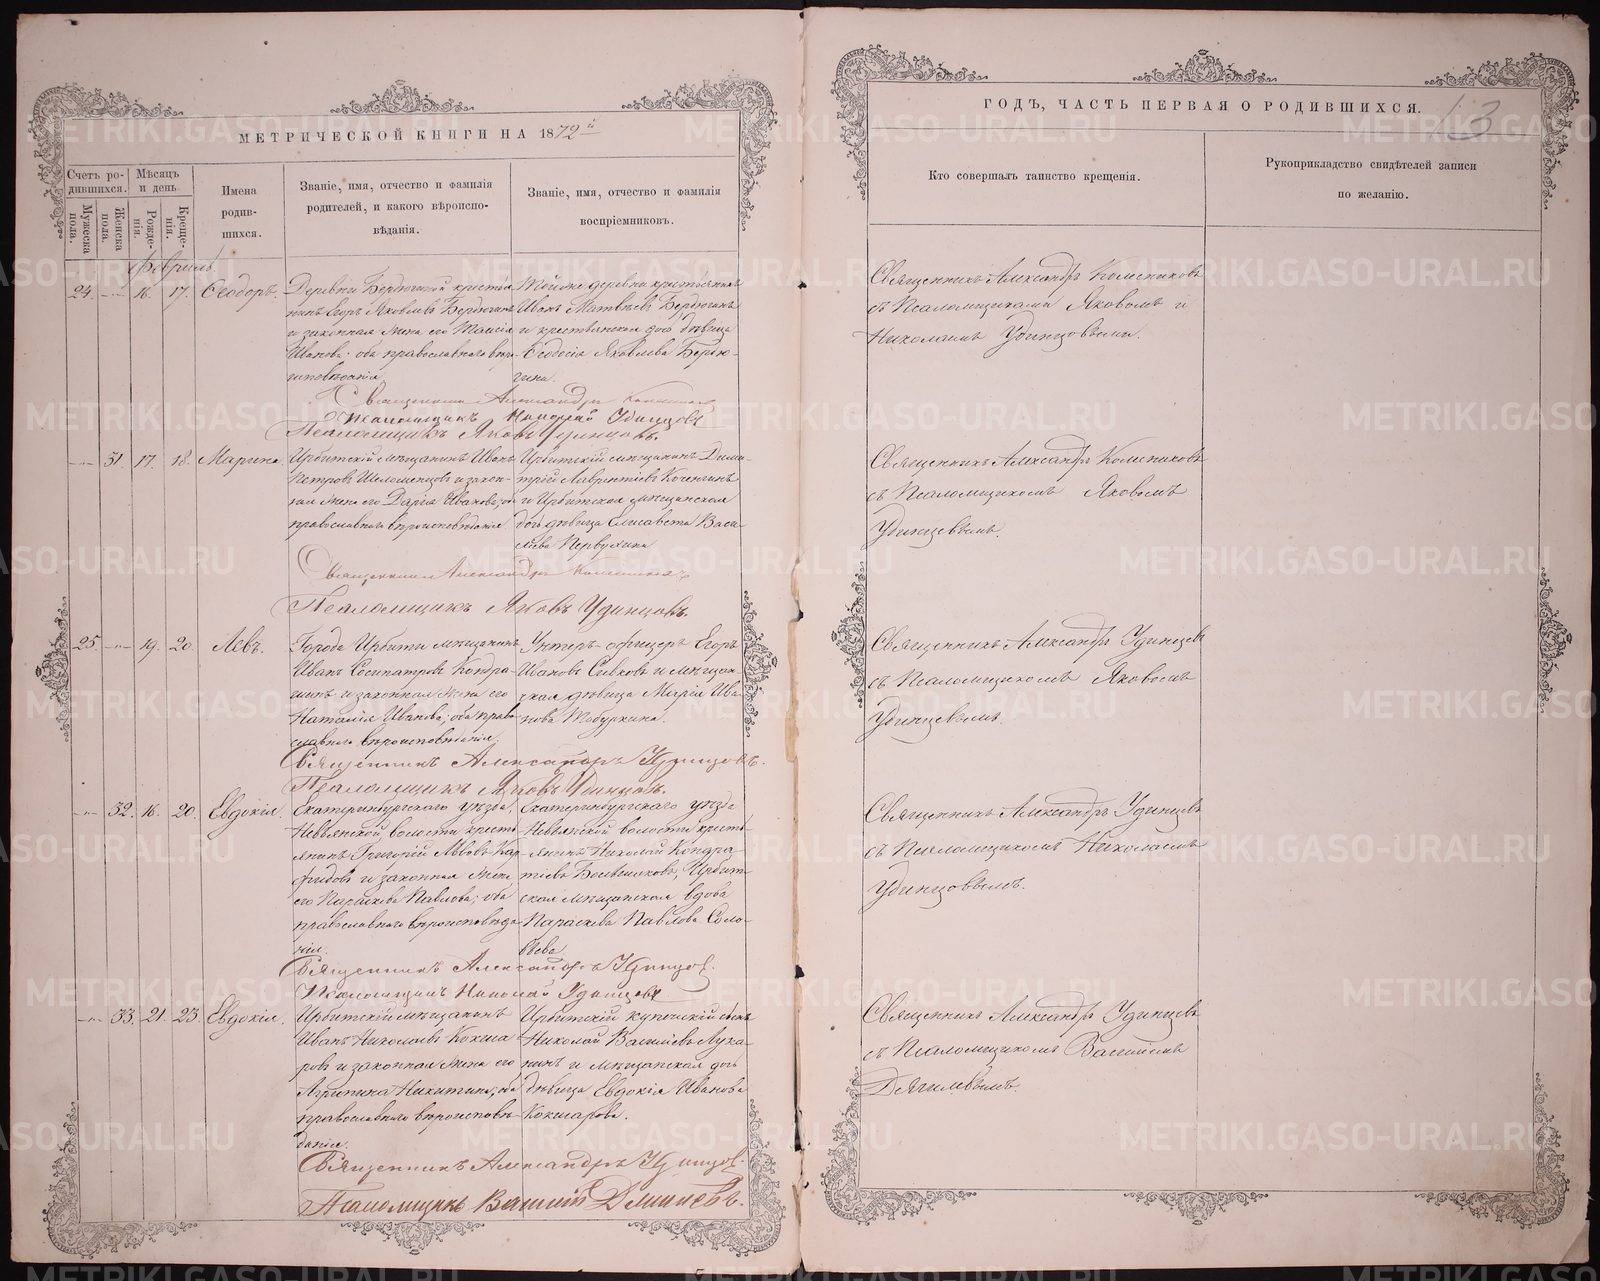 МЕТРИЧЕСКОЙ КНИГИ НА 1872й
Счетъ родившихся.
Мужеска пола.
Женска пола.
Мѣсяцъ и день
Рожденія.
Крещенія.
Имена родившихся.
Званіе, имя, отчество и фамилія
родителей, и какого вѣроиспо-
вѣданія.
Званіе, имя, отчество и фамилія
воспріемниковъ.
24. 16. 17. Ѳеодоръ.
Деревни Бердюгиной крестья
нинъ Егоръ Яковлевъ Бердюгинъ
и законная жена его Таисія
Иванова; оба православнаго вѣро-
исповѣданія.
Той же деревни крестьянинъ
Иванъ Матвѣевъ Бердюгинъ
и крестьянская дочь дѣвица
Ѳеодосія Яковлева Бердю-
гина.
Священникъ Александръ
Псаломщикъ Николай Удинцовъ
Псаломщикъ Яковъ Удинцовъ.
31. 17. 18. Марина.
Ирбитскій мѣщанинъ Иванъ
Петровъ и закон-
ная жена его Дарія Иванова; оба
православнаго вѣроисповѣданія
Ирбитскій мѣщанинъ Дими-
трій Лаврентіевъ
и Ирбитская мѣщанская
дочь дѣвица Елисавета Васи
льева Первухина
Священникъ Александръ
Псаломщикъ Яковъ Удинцовъ.
25. 19. 20. Левъ.
Города Ирбити мѣщанинъ
Иванъ Сосипатровъ Кондра-
шинъ и законная жена его
Наталія Иванова; оба право-
славнаго вѣроисповѣданія.
Унтеръ-офицеръ Егоръ
Ивановъ Сивковъ и мѣщан-
ская дѣвица Марія Ива
нова
Священникъ Александръ Удинцовъ.
Псаломщикъ Яковъ Удинцовъ.
32. 16. 20. Евдокія.
Екатеринбургскаго уѣзда,
Невьянской волости кресть
янинъ Григорій Львовъ
и законная жена
его Параскева Павлова; оба
православнаго вѣроисповѣда
нія.
Екатеринбургскаго уѣзда
Невьянской волости кресть
янинъ Николай Кондра
тіевъ Ирбит
ская мѣщанская вдова
Параскева Павлова Соло-
вьева
Священникъ Александръ Удинцов.
Псаломщикъ Николай Удинцовъ
33. 21. 23. Евдокія.
Ирбитскій мѣщанинъ
Иванъ Николаевъ Кокша
ровъ и законная жена его
Агрипина Никитина; оба
православнаго вѣроисповѣ-
данія.
Ирбитскій купеческій сынъ
Николай Васильевъ Луха-
нинъ и мѣщанская дочь
дѣвица Евдокія Иванова
Кокшарова.
Священникъ Александръ Удинцов.
Псаломщикъ Василій
ГОДЪ, ЧАСТЬ ПЕРВАЯ О РОДИВШИХСЯ.
13
Кто совершалъ таинство крещенія.
Рукоприкладство свидѣтелей записи
по желанію.
Священникъ Александръ
съ Псаломщиками Яковомъ и
Николаемъ Удинцовыми.
Священникъ Александръ
съ Псаломщикомъ Яковомъ
Удинцевымъ.
Священникъ Александръ Удинцевъ
съ Псаломщикомъ Яковомъ
Удинцевымъ.
Священникъ Александръ Удинцевъ
съ Псаломщикомъ Николаемъ
Удинцовымъ.
Священникъ Александръ Удинцевъ
съ Псаломщикомъ Василіемъ
METRIKI.GASO-URAL.RU